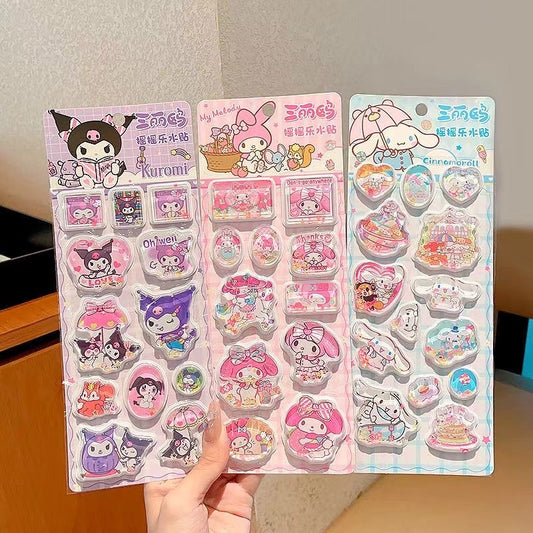 三丽鸥
摇摇乐水贴
Kuromi
Oh well
LOVE
My Melody
三丽鸥
摇摇乐水贴
Thanks
三丽鸥
摇摇乐水贴
Cinnamoroll